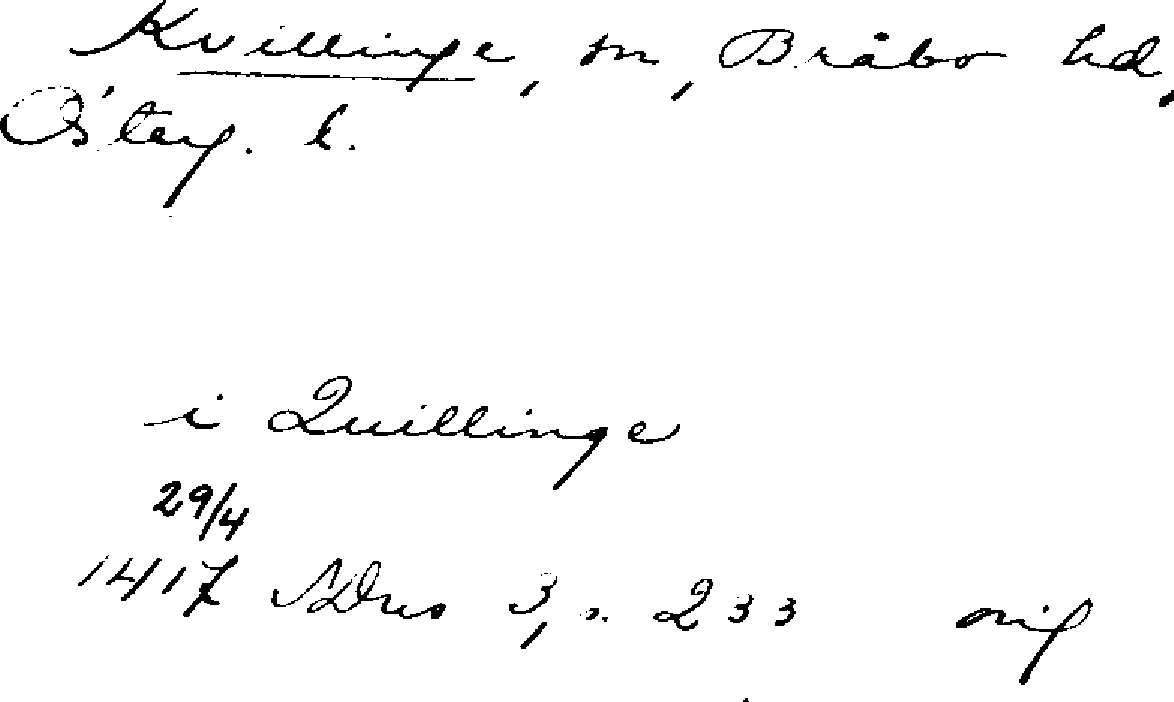 Kvillinge, sn, Bråbo hd,
Österg. l.
i Quillinge
29/4
1417 SDns 3, s. 233 orig